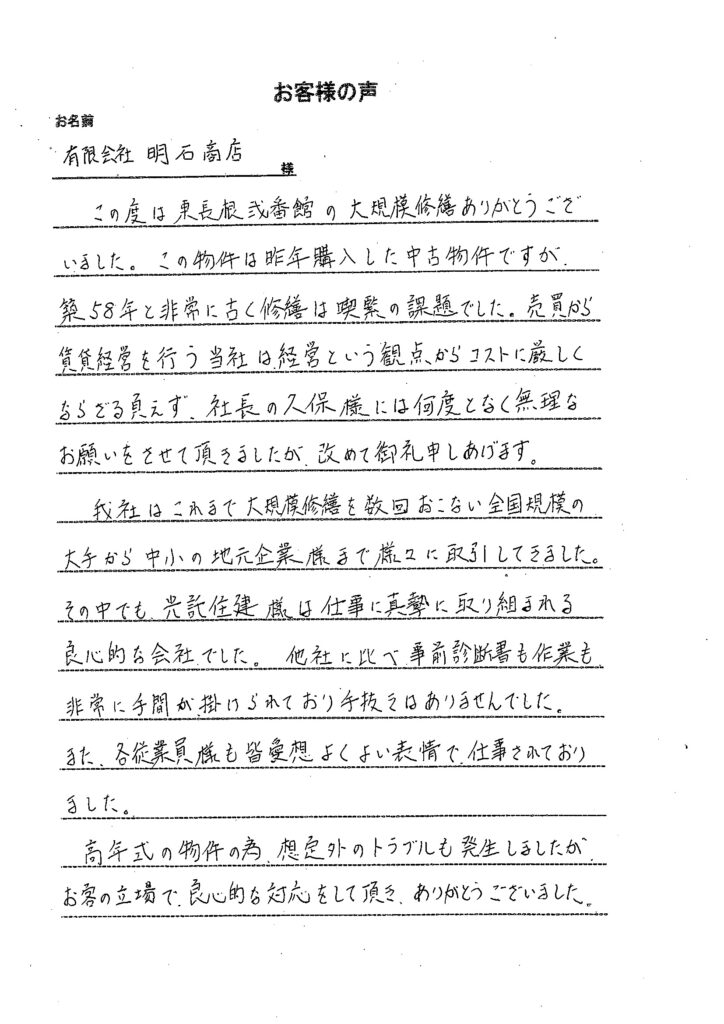 お客様の声
お名前
有限会社 明石商店
様
この度は東長根弐番館の大規模修繕ありがとうござ
いました。この物件は昨年購入した中古物件ですが、
築58年と非常に古く修繕は喫緊の課題でした。売買から
賃貸経営を行う当社は、経営という観点からコストに厳しく
ならざる負えず、社長の久保様には何度となく無理な
お願いをさせて頂きましたが、改めて御礼申しあげます。
我社はこれまで大規模修繕を数回おこない全国規模の
大手から中小の地元企業様まで様々に取引してきました。
その中でも、光託住建様は仕事に真摯に取り組まれる
良心的な会社でした。他社に比べ事前診断書も作業も
非常に手間が掛けられており手抜きはありませんでした。
また、各従業員様も皆愛想よくよい表情で仕事されており
ました。
高年式の物件の為、想定外のトラブルも発生しましたが、
お客の立場で、良心的な対応をして頂き、ありがとうございました。